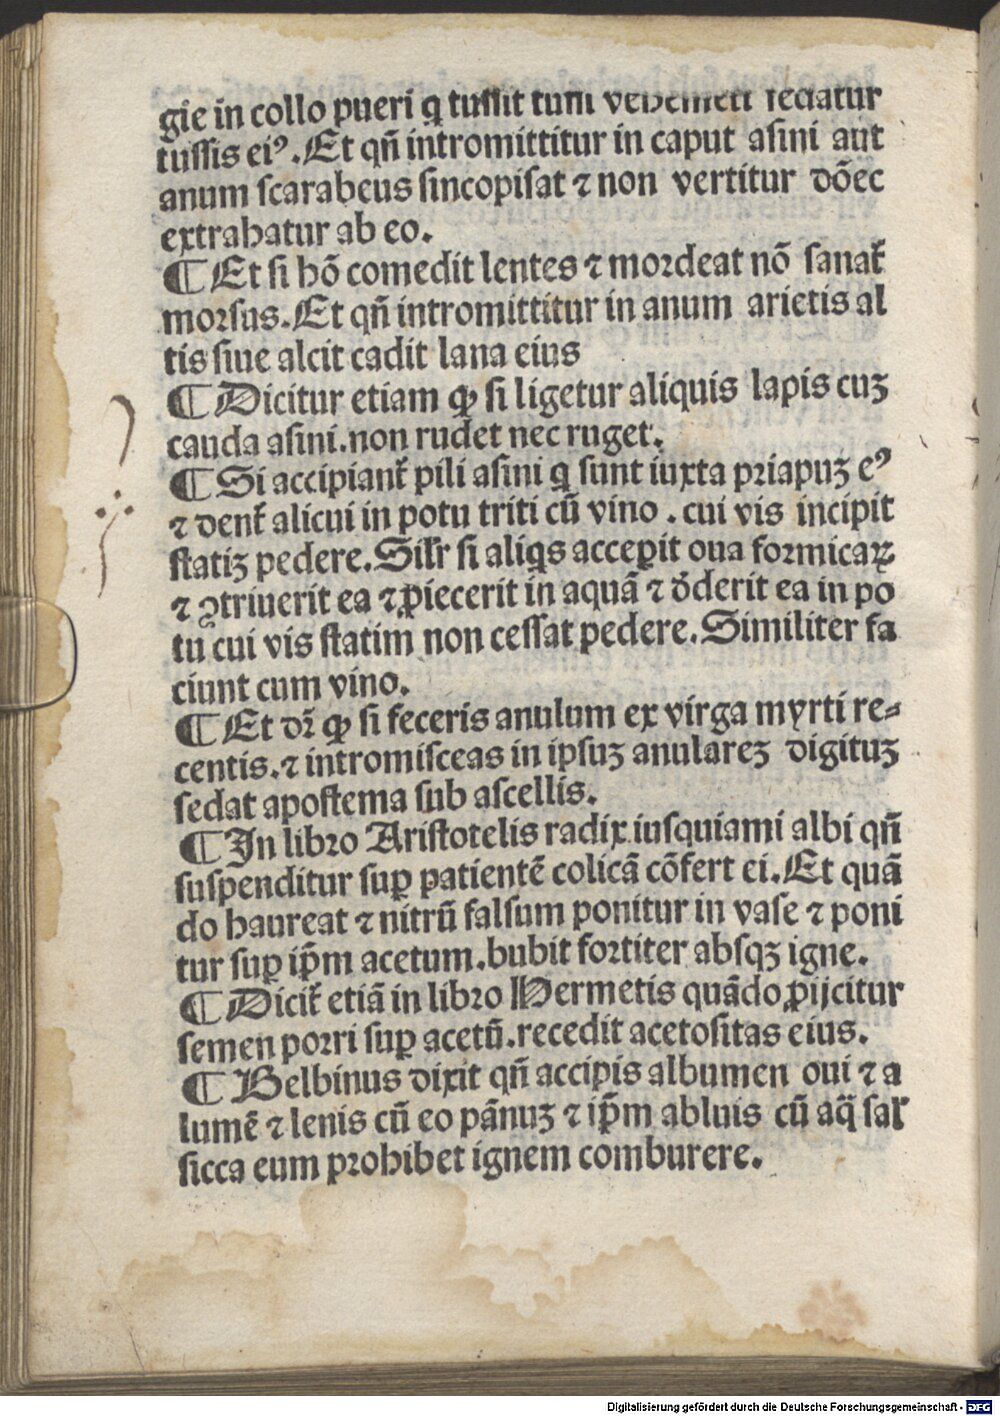 gie in collo pueri q̄ tussit tussi vehemēti sedatur
tussis eiꝰ. Et qn̄ intromittitur in caput asini aut
anum scarabeus sincopisat ⁊ non vertitur dōec
extrahatur ab eo.
¶ Et si hō comedit lentes ⁊ mordeat nō sanat᷑
morsus. Et qn̄ intromittitur in anum arietis al
tis siue alcit cadit lana eius
¶ Dicitur etiam ꝙ si ligetur aliquis lapis cuꝫ
cauda asini. non rudet nec ruget.
¶ Si accipiant᷑ pili asini q̄ sunt iuxta priapuꝫ eꝰ
⁊ dent᷑ alicui in potu triti cū vino. cui vis incipit
statiꝫ pedere. Sil'r si aliqͥs acceꝑit oua formicaꝝ
⁊ ꝯtriuerit ea ⁊ ꝓiecerit in aquā ⁊ dederit ea in po
tu cui vis statim non cessat pedere. Similiter fa
ciunt cum vino.
¶ Et dr̄ ꝙ si feceris anulum ex virga myrti re⸗
centis. ⁊ intromisceas in ipsuꝫ anulareꝫ digituꝫ
sedat apostema sub ascellis.
¶ In libro Aristotelis radix iusquiami albi qn̄
suspenditur suꝑ patientē colicā cōfert ei. Et quā
do haureat ⁊ nitrū falsum ponitur in vase ⁊ poni
tur suꝑ ip̄m acetum. bubit fortiter absqꝫ igne.
¶ Dicit᷑ etiā in libro Hermetis quādo ꝓijcitur
semen porri suꝑ acetū. recedit acetositas eius.
¶ Belbinus dixit qn̄ accipis albumen oui ⁊ a
lumē ⁊ lenis cū eo pānuꝫ ⁊ ip̄m abluis cū aq̄ sal'
sicca eum prohibet ignem comburere.
Digitalisierung gefördert durch die Deutsche Forschungsgemeinschaft - DFG